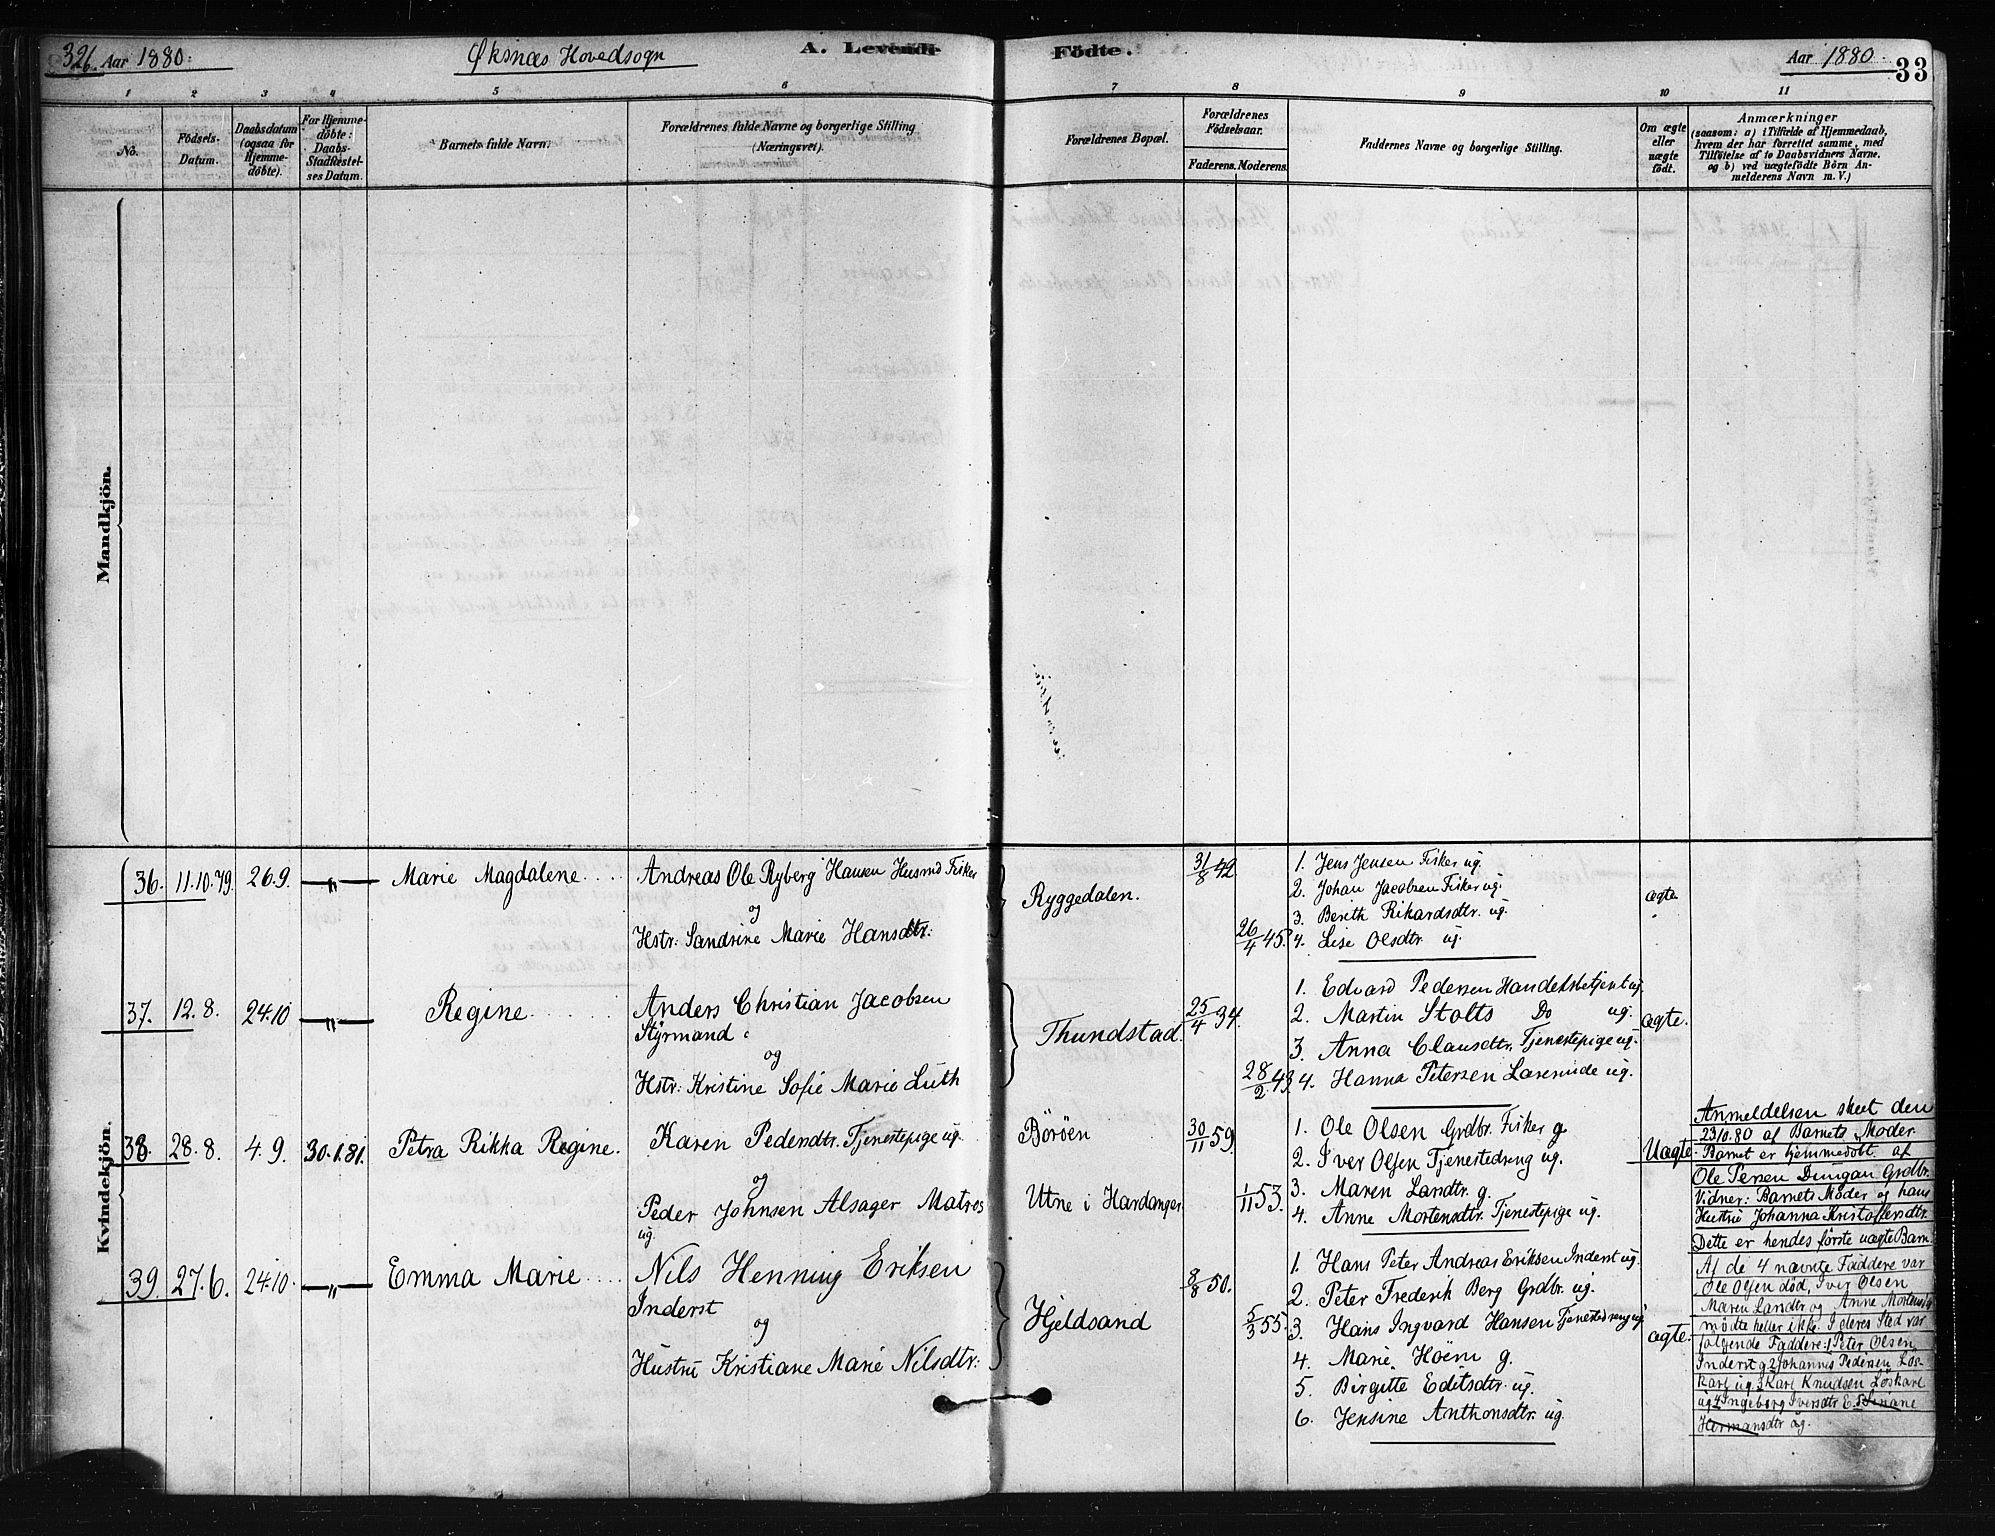 326. Aar 1880. Øksnæs Hovedsogn A. Levende Födte. Aar 1880. 33
1 2 3 4 5 6 7 8 9 10 11
No.
Födsels-
Datum.
Daabsdatum
(ogsaa for
Hjemme-
döbte).
For Hjemme-
döbte:
Daabs-
Stadfæstel-
ses Datum.
Barnets fulde Navn.
Forældrenes fulde Navne og borgerlige Stilling
(Næringsvei).
Forældrenes Bopæl.
Forældrenes
Födselsaar.
Faderens. Moderens.
Faddernes Navne og borgerlige Stilling.
Om ægte
eller
uægte
födt.
Anmærkninger
(saasom: a) i Tilfælde af Hjemmedaab,
hvem der har forrettet samme, med
Tilföielse af to Daabsvidners Navne.
og b) ved uægtefödte Börn An-
melderens Navn m. V.)
Mandkjön.
Kvindekjön.
36. 11.10.79. 26.9. —„— Marie Magdalene
Andreas Ole Ryberg Hansen Husmd Fisker
og
Hstr: Sandrine Marie Hansdtr:
Ryggedalen.
31/8 42
26/4 45.
1. Jens Jensen Fisker ug.
2. Johan Jacobsen Fisker ug.
3. Berith Rikardsdtr. ug.
4. Lise Olsdtr ug.
ægte
37. 12.8. 24.10 —„— Regine
Anders Christian Jacobsen
Styrmand
og
Hstr: Kristine Sofie Marie Luth
Thundstad.
25/4 34.
28/2 43.
1. Edvard Pedersen Handelsbetjent ug.
2. Martin Stolts Do ug.
3. Anna Clausdtr. Tjenestepige ug.
4. Hanna Petersen Lærerinde ug.
ægte.
38. 28.8. 4.9. 30.1.81. Petra Rikka Regine.
Karen Pedersdtr. Tjenestepige ug.
og
Peder Johnsen Alsager Matros
ug.
Böröen
Utne i Hardanger
30/11 59.
1/11 53.
1. Ole Olsen Grdbr. Fisker g.
2. Iver Olsen Tjenestedreng ug.
3. Maren Landtr. g.
4. Anne Mortensdtr. Tjenestepige ug.
Uægte.
Anmeldelsen skeet den
23.10.80 af Barnets Moder.
Barnet er hjemmedöbt af
Ole Persen Dungan Grdbr.
Vidner: Barnets Moder og hans
Hustru Johanna Kristoffersdtr.
Dette er hendes förste uægte Barn.
Af de 4 nævnte Faddere var
Ole Olsen död, Iver Olsen
Maren Landtr og Anne Mortensdtr
mödte heller ikke. I deres Sted var
fölgende Faddere: 1 Peter Olsen
Inderst g. 2 Johannes Pedersen Lös-
karl ug. 3 Karl Knudsen Löskarl
ug. 4 Ingeborg Iversdtr E. 5
Hermansdtr ug.
39. 27.6. 24.10. —„— Emma Marie
Nils Henning Eriksen
Inderst
og
Hustru Kristiane Marie Nilsdtr:
Hjeldsand
8/8 50.
5/3 55.
1. Hans Peter Andreas Eriksen Inderst ug.
2. Peter Frederik Berg Grdbr. ug.
3. Hans Ingvard Hansen Tjenestedreng ug.
4. Marie Höem g.
5. Birgitte Editsdtr. ug.
6. Jensine Anthonsdtr. ug.
ægte.